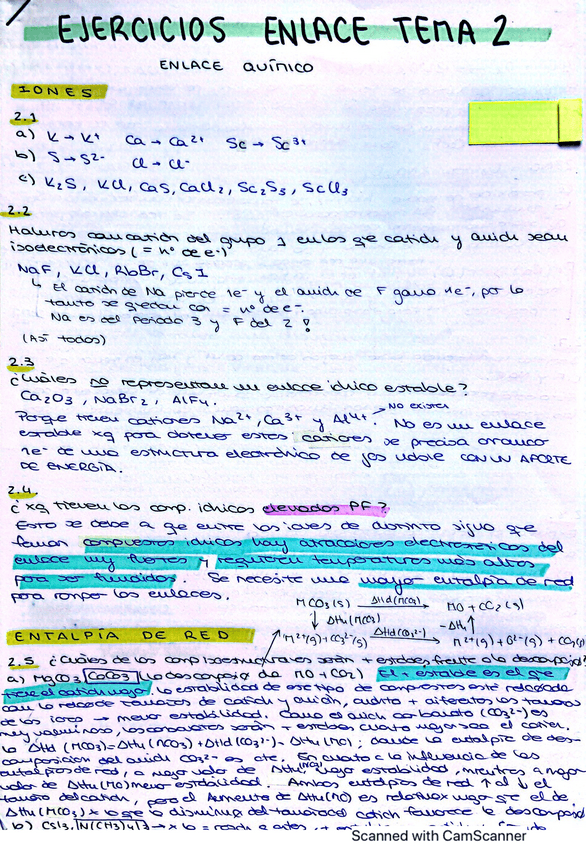 EJERCICIOS ENLACE TEMA 2
ENLACE QUÍMICO
IONES
2.1
a) K → K⁺ Ca → Ca²⁺ Sc → Sc³⁺
b) S → S²⁻ Cl → Cl⁻
c) K₂S, KCl, CaS, CaCl₂, Sc₂S₃, ScCl₃
2.2
Haluros con catión del grupo 1 en los que catión y anión sean
isoelectrónicos (= nº de e⁻)
NaF, KCl, RbBr, CsI
↳ El catión de Na pierde 1e⁻ y el anión de F gana 1e⁻, por lo
tanto se quedan con = nº de e⁻.
Na es del periodo 3 y F del 2!
(Así todos)
2.3
¿Cuáles NO representan un enlace iónico estable?
Ca₂O₃, NaBr₂, AlF₄.
Porque tienen cationes Na²⁺, Ca³⁺ y Al⁴⁺. → NO EXISTEN No es un enlace
estable xq para obtener estos cationes se precisa arrancar
1e⁻ de una estructura electrónica de gas noble CON UN APORTE
DE ENERGÍA.
2.4
¿xq tienen los comp. iónicos elevados PF?
Esto se debe a que entre los iones de distinto signo que
forman compuestos iónicos hay atracciones electrostáticas del
enlace muy fuertes y requieren temperaturas más altas
para ser fundidos. Se necesita una mayor entalpía de red
para romper los enlaces.
MCO₃(s) ΔHd(MCO₃) → MO + CO₂(g)
↓ ΔHu(MCO₃) -ΔHu ↑
M²⁺(g) + CO₃²⁻(g) ΔHd(CO₃²⁻) → M²⁺(g) + O²⁻(g) + CO₂(g)
ENTALPÍA DE RED
2.5 ¿Cuáles de los comp isoestructurales serán + estables frente a la descomposición?
a) MgCO₃, CaCO₃ (lo descompone da MO + CO₂) El + estable es el que
tiene el catión mayor, la estabilidad de este tipo de compuestos está relacionada
con la relación de tamaños de catión y anión, cuánto + diferentes los tamaños
de los iones → menor estabilidad. Como el anión carbonato (CO₃²⁻) es
muy voluminoso, los carbonatos serán + estables cuanto mayor sea el catión.
ΔHd (MCO₃) = ΔHu (MCO₃) + ΔHd (CO₃²⁻) - ΔHu (MO); donde la entalpía de des-
composición del anión CO₃²⁻ es cte. En cuanto a la influencia de las
entalpías de red, a mayor valor de ΔHu (MCO₃) mayor estabilidad, mientras a mayor
valor de ΔHu (MO) menor estabilidad. Ambas entalpías de red ↑ al ↓ el
tamaño del catión, pero el aumento de ΔHu (MO) es relativamente mayor que el de
ΔHu (MCO₃) x lo que la disminución del tamaño del catión favorece la descomposición
b) CsI₃, N(CH₃)₄I₃ →
Scanned with CamScanner